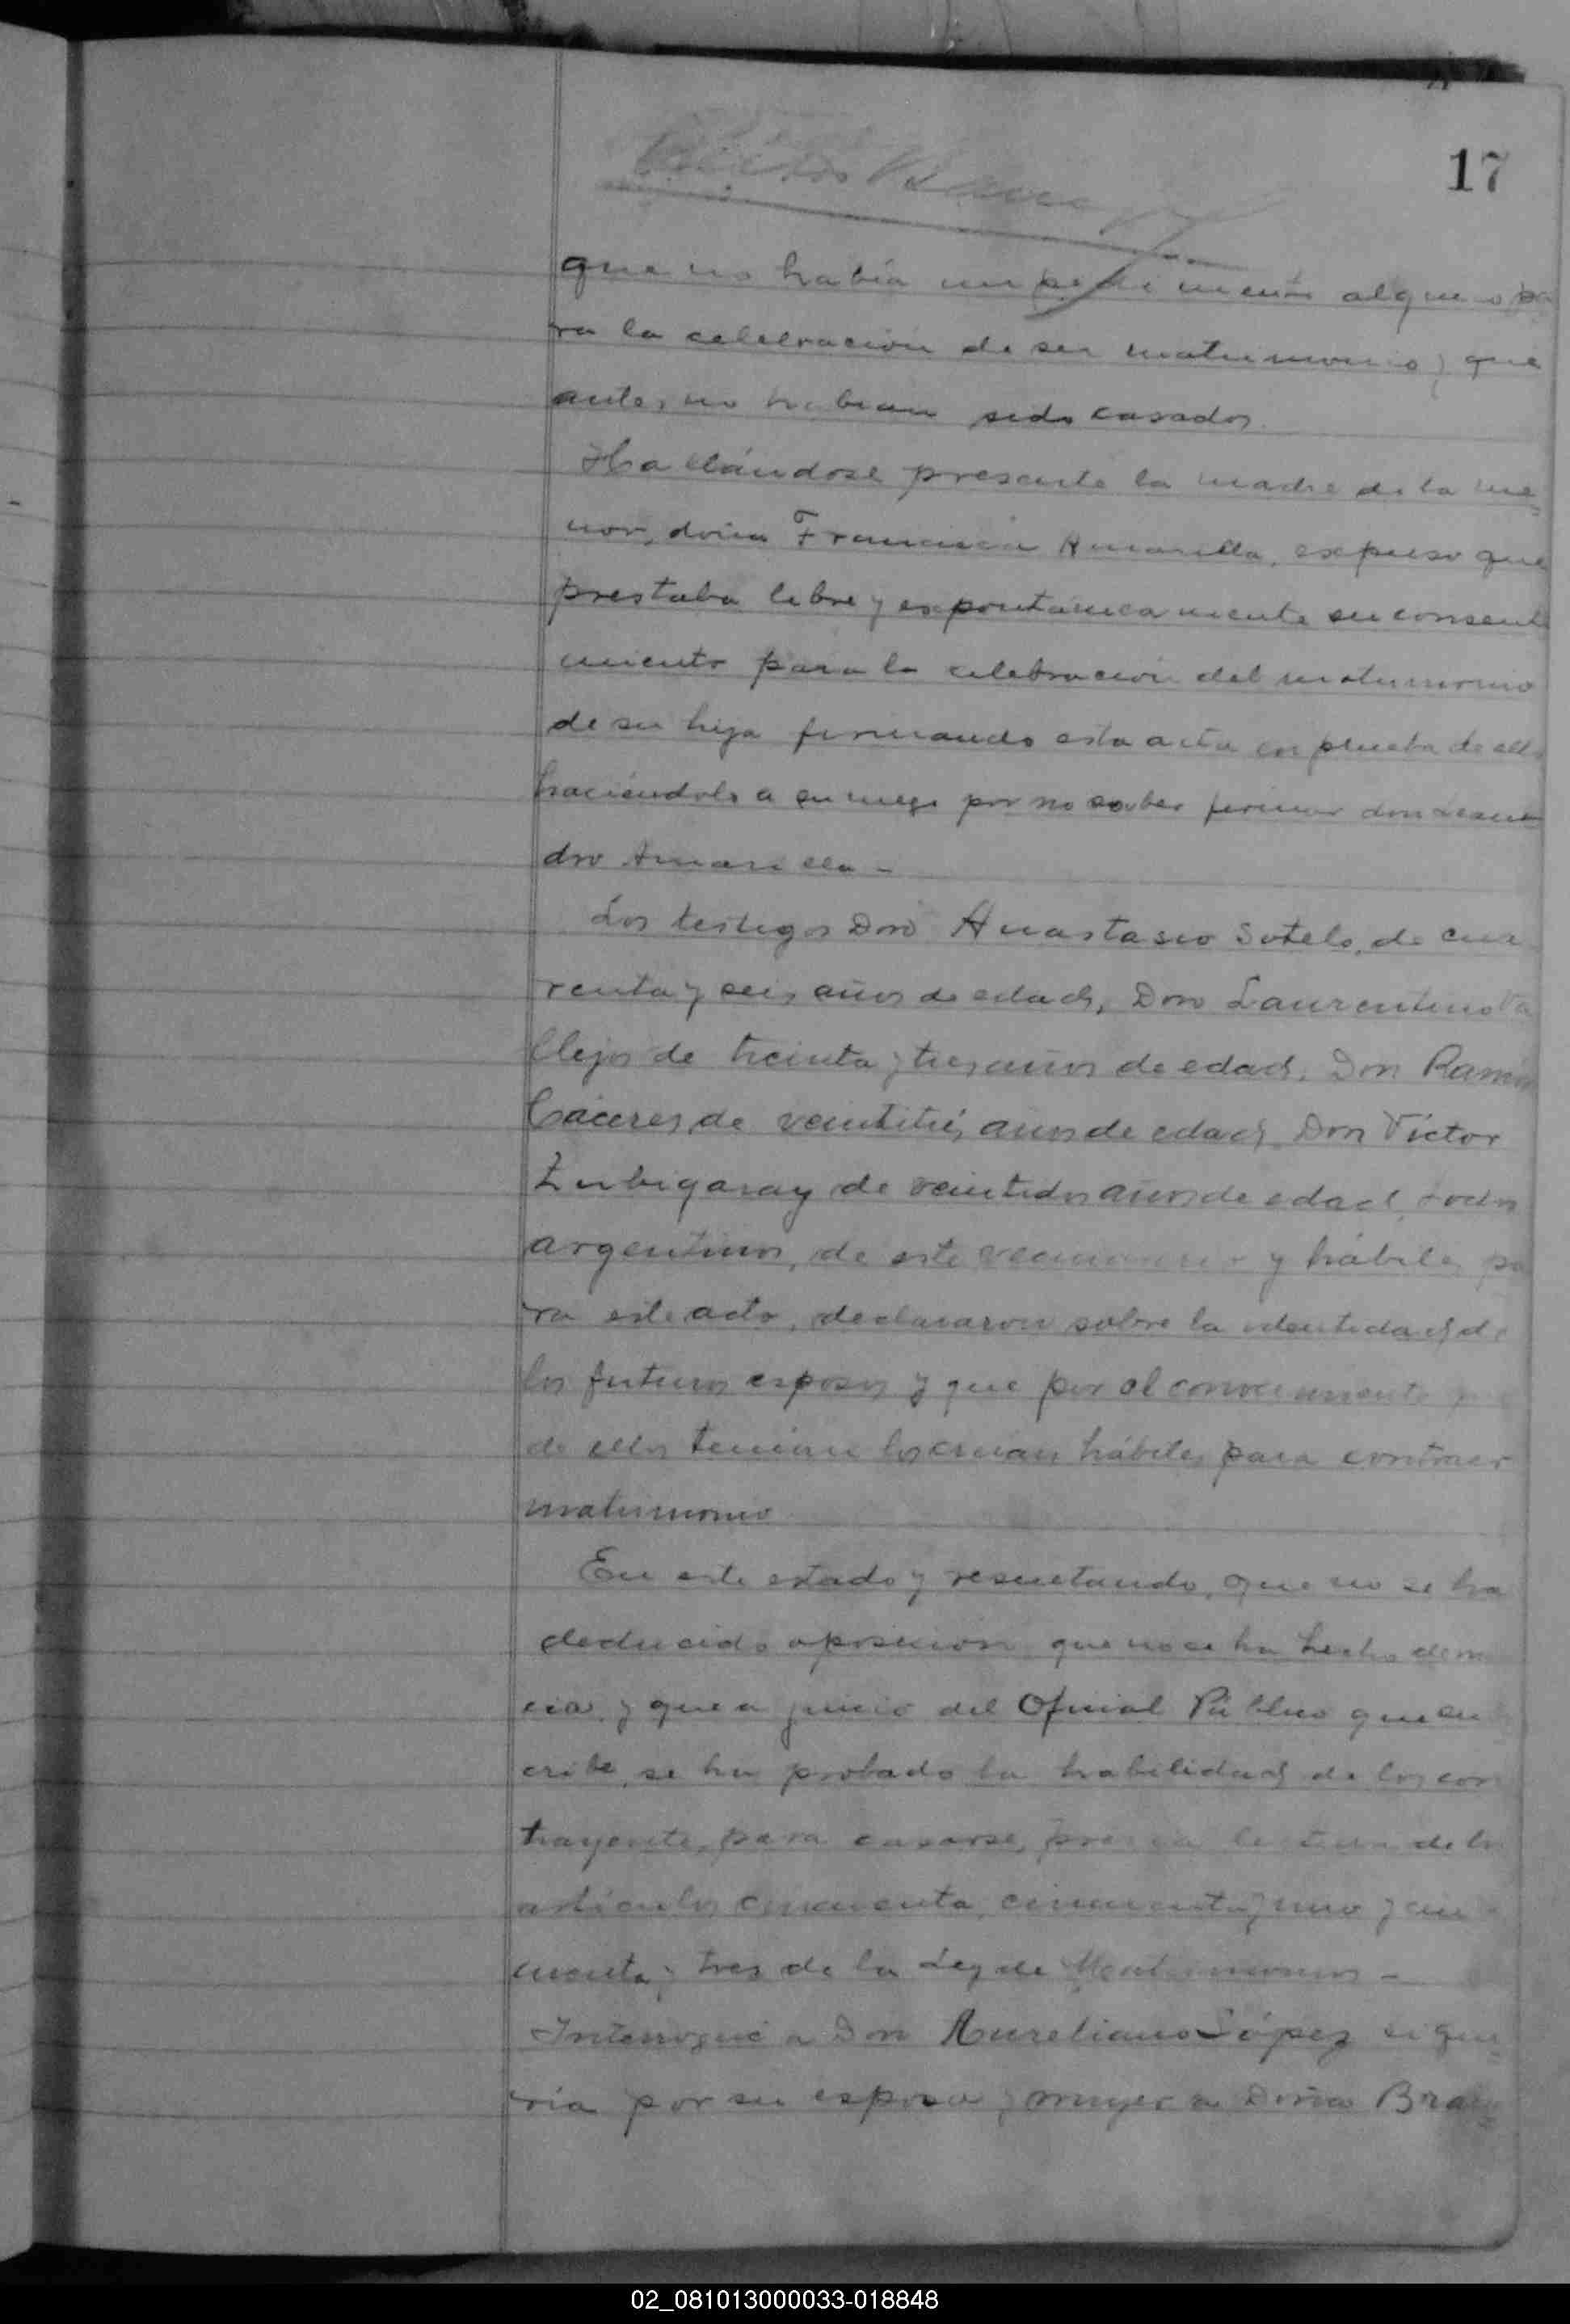 17
que no había impedimento alguno pa
ra la celebración de su matrimonio, y que
antes no habian sido casados.
Hallándose presente la madre de la me-
nor, doña Francisca Amarilla, expuso que
prestaba libre y espontáneamente su consenti
miento para la celebración del matrimonio
de su hija firmando esta acta en prueba de ello
haciéndolo a su ruego por no saber firmar don
dro Amarilla -
Los testigos Don Anastasio Sotelo, de cua
renta y seis años de edad, Don Laurentino Va
llejos de treinta y tres años de edad, Don Ramón
Cáceres, de veintitrés años de edad, Don Víctor
Zubigaray de veintidos años de edad, todos
argentinos, de este vecindario y hábiles pa
ra este acto, declararon sobre la identidad de
los futuros esposos y que por el conocimiento que
de ellos tenían los creían hábiles para contraer
matrimonio
En este estado y resultando, que no se ha
deducido oposición que no se ha hecho denun
cia, y que a juicio del Oficial Público que sus
cribe, se ha probado la habilidad de los con
trayentes para casarse, previa lectura de los
artículos cincuenta, cincuenta y uno y cin
cuenta y tres de la Ley de Matrimonios -
Interrogué a Don Aureliano López si que-
ría por su esposa y mujer a Doña